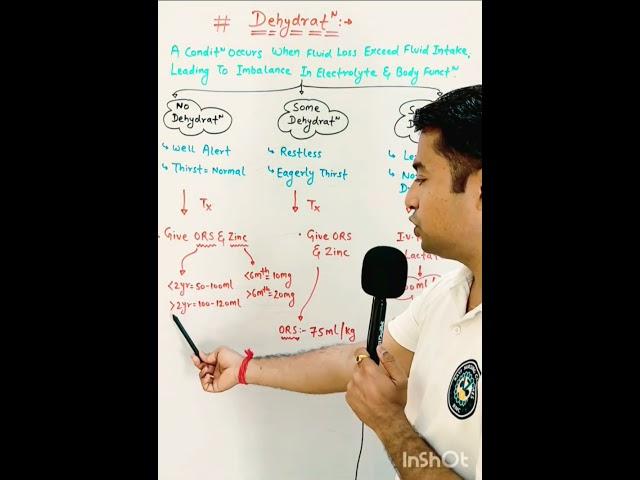 # Dehydratᴺ :→
A Conditᴺ Occurs When Fluid Loss Exceed Fluid Intake,
Leading To Imbalance In Electrolyte & Body Functᴺ.
No
Dehydratᴺ
↳ Well Alert
↳ Thirst = Normal
Tx
Give ORS & Zinc
<2yr = 50-100ml
>2yr = 100-120ml
<6mᵗʰ = 10mg
>6mᵗʰ = 20mg
Some
Dehydratᴺ
↳ Restless
↳ Eagerly Thirst
Tx
• Give ORS
& Zinc
ORS :- 75ml/kg
I.V.
Lactat
InShOt